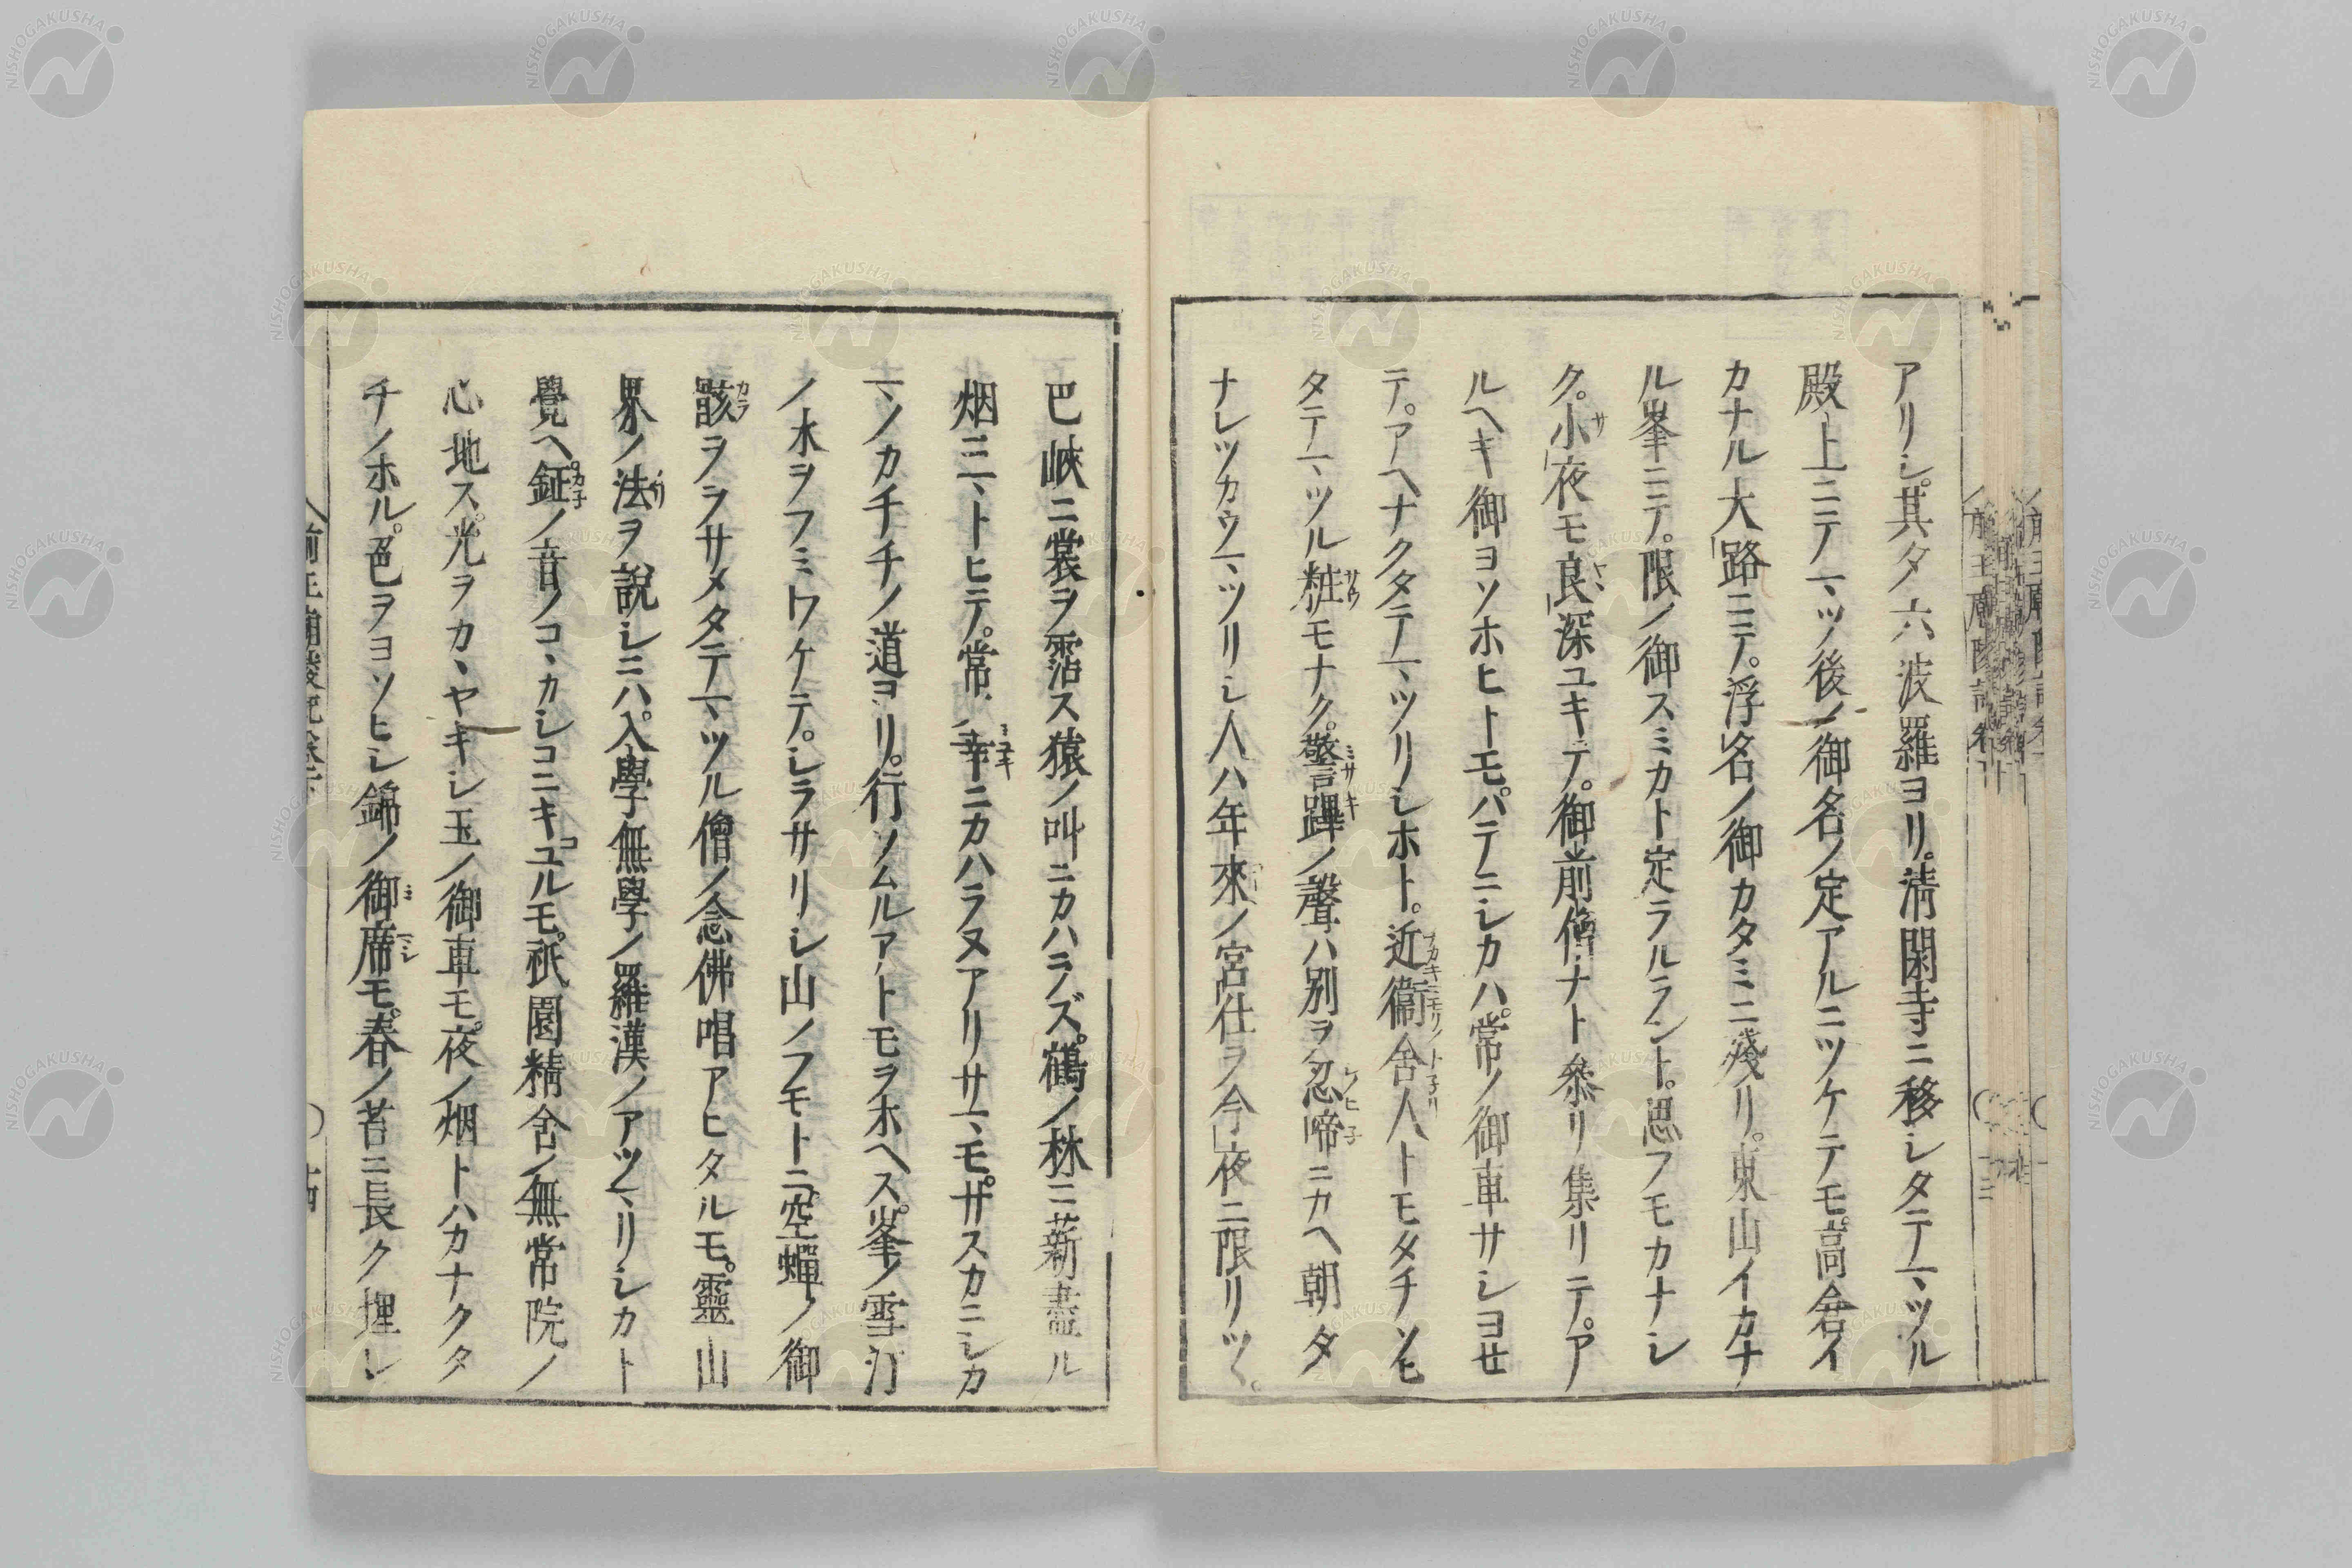 アリシ。其夕六波羅ヨリ。淸閑寺ニ移シタテマツル
殿上ニテマツ後ノ御名ノ定アルニツケテモ。高倉イ
カナル大路ニテ。浮名ノ御カタミニ殘リ。東山イカナ
ル峯ニテ。限ノ御スミカト定ラルラント。思フモカナシ
ク。小夜モ良深ユキテ。御前僧ナト參リ集リテ。ア
ルヘキ御ヨソホヒトモ。パテニシカハ。常ノ御車サシヨセ
テ。アヘナクタテマツリシホト。近衞舍人トモタチソヒ
タテマツル粧モナク。警蹕ノ聲ハ別ヲ忍啼ニカヘ朝夕
ナレツカウマツリシ人ハ年來ノ宮仕ヲ今夜ニ限リツヽ。
巴峽ニ裳ヲ霑ス猿ノ叫ニカハラズ。鶴ノ林ニ薪盡ル
烟ミマトヒテ。常ノ幸ニカハラヌアリサマモ。サスカニシカ
マノカチチノ道ヨリ。行ソムルアトモヲホヘス。峯ノ雪汀
ノ氷ヲフミワケテ。シラサリシ山ノフモトニ。空蟬ノ御
骸ヲヲサメタテマツル僧ノ念佛唱アヒタルモ。靈山
界ノ法ヲ說シニハ。入學無學ノ羅漢ノアツマリシカト
覺ヘ。鉦ノ音ノコヽカシコニキコユルモ。祇園精舍ノ無常院ノ
心地ス。光ヲカヽヤキシ玉ノ御車モ。夜ノ烟トハカナクタ
チノホル。色ヲヨソヒシ錦ノ御席モ。春ノ苔ニ長ク埋レ
前王廟陵記卷下
NISHOGAKUSHA